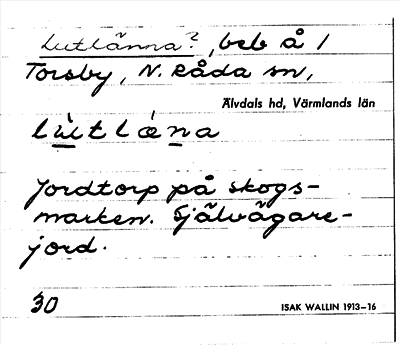 Lutlänna?, beb å /
Torsby, N. Råda sn,
Älvdals hd, Värmlands län
lùtlǽna
Jordtorp på skogs-
marken. Självägare-
jord.
30
ISAK WALLIN 1913–16